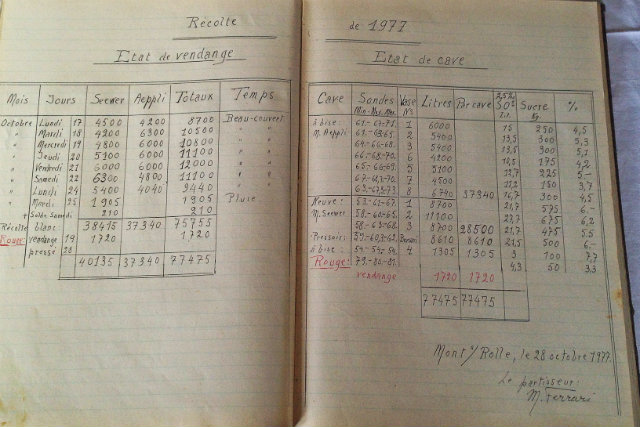 Récolte
Etat de vendange
Mois Jours Secwer Aeppli Totaux Temps
Octobre Lundi 17 4500 4200 8700 Beau-couvert
" Mardi 18 4200 6300 10500 " "
" Mercredi 19 4800 6000 10800 " "
" Jeudi 20 5100 6000 11100 " "
" Vendredi 21 6000 6000 12000 " "
" Samedi 22 6300 4800 11100 " "
" Lundi 24 5400 4040 9440 " "
" Mardi 25 1905 1905 Pluie
+ Solde Samedi 210 210
Récolte blanc 38415 37340 75755
Rouge vendange 19 1720 1720
pressé 28
40135 37340 77475
de 1977
Etat de cave
Cave Sondes Vase Litres Par cave Sucre %
Min. Moy. Max. N°s Kg
à bise: 61.-67.-71. 1 6000 15 250 4,5
M. Aeppli 2 5400 13,5 300 5,3
64.-66.-68. 3 5400 13,5 300 5,1
66.-68.-70. 6 4200 175 4,2
65.-66.-69. 5 5100 225 5.-
7 4500 150 3,7
63.-65.-73. 8 6740 37340 300 4,5
Neuve: 1 575 6.-
M. Secwer 2 11100 675 6,2
3 8700 28500 475 5.5
Pressoir: 8610 8610 21,5 500 6.-
à bise: 54.-54.-54. 4 1305 1305 3 100 7,7
Rouge: 79.-80.-81. 1720 1720 4,3 50 3,3
vendange
77475 77475
Mont s/ Rolle, le 28 octobre 1977.
Le partisseur:
M. Ferrari